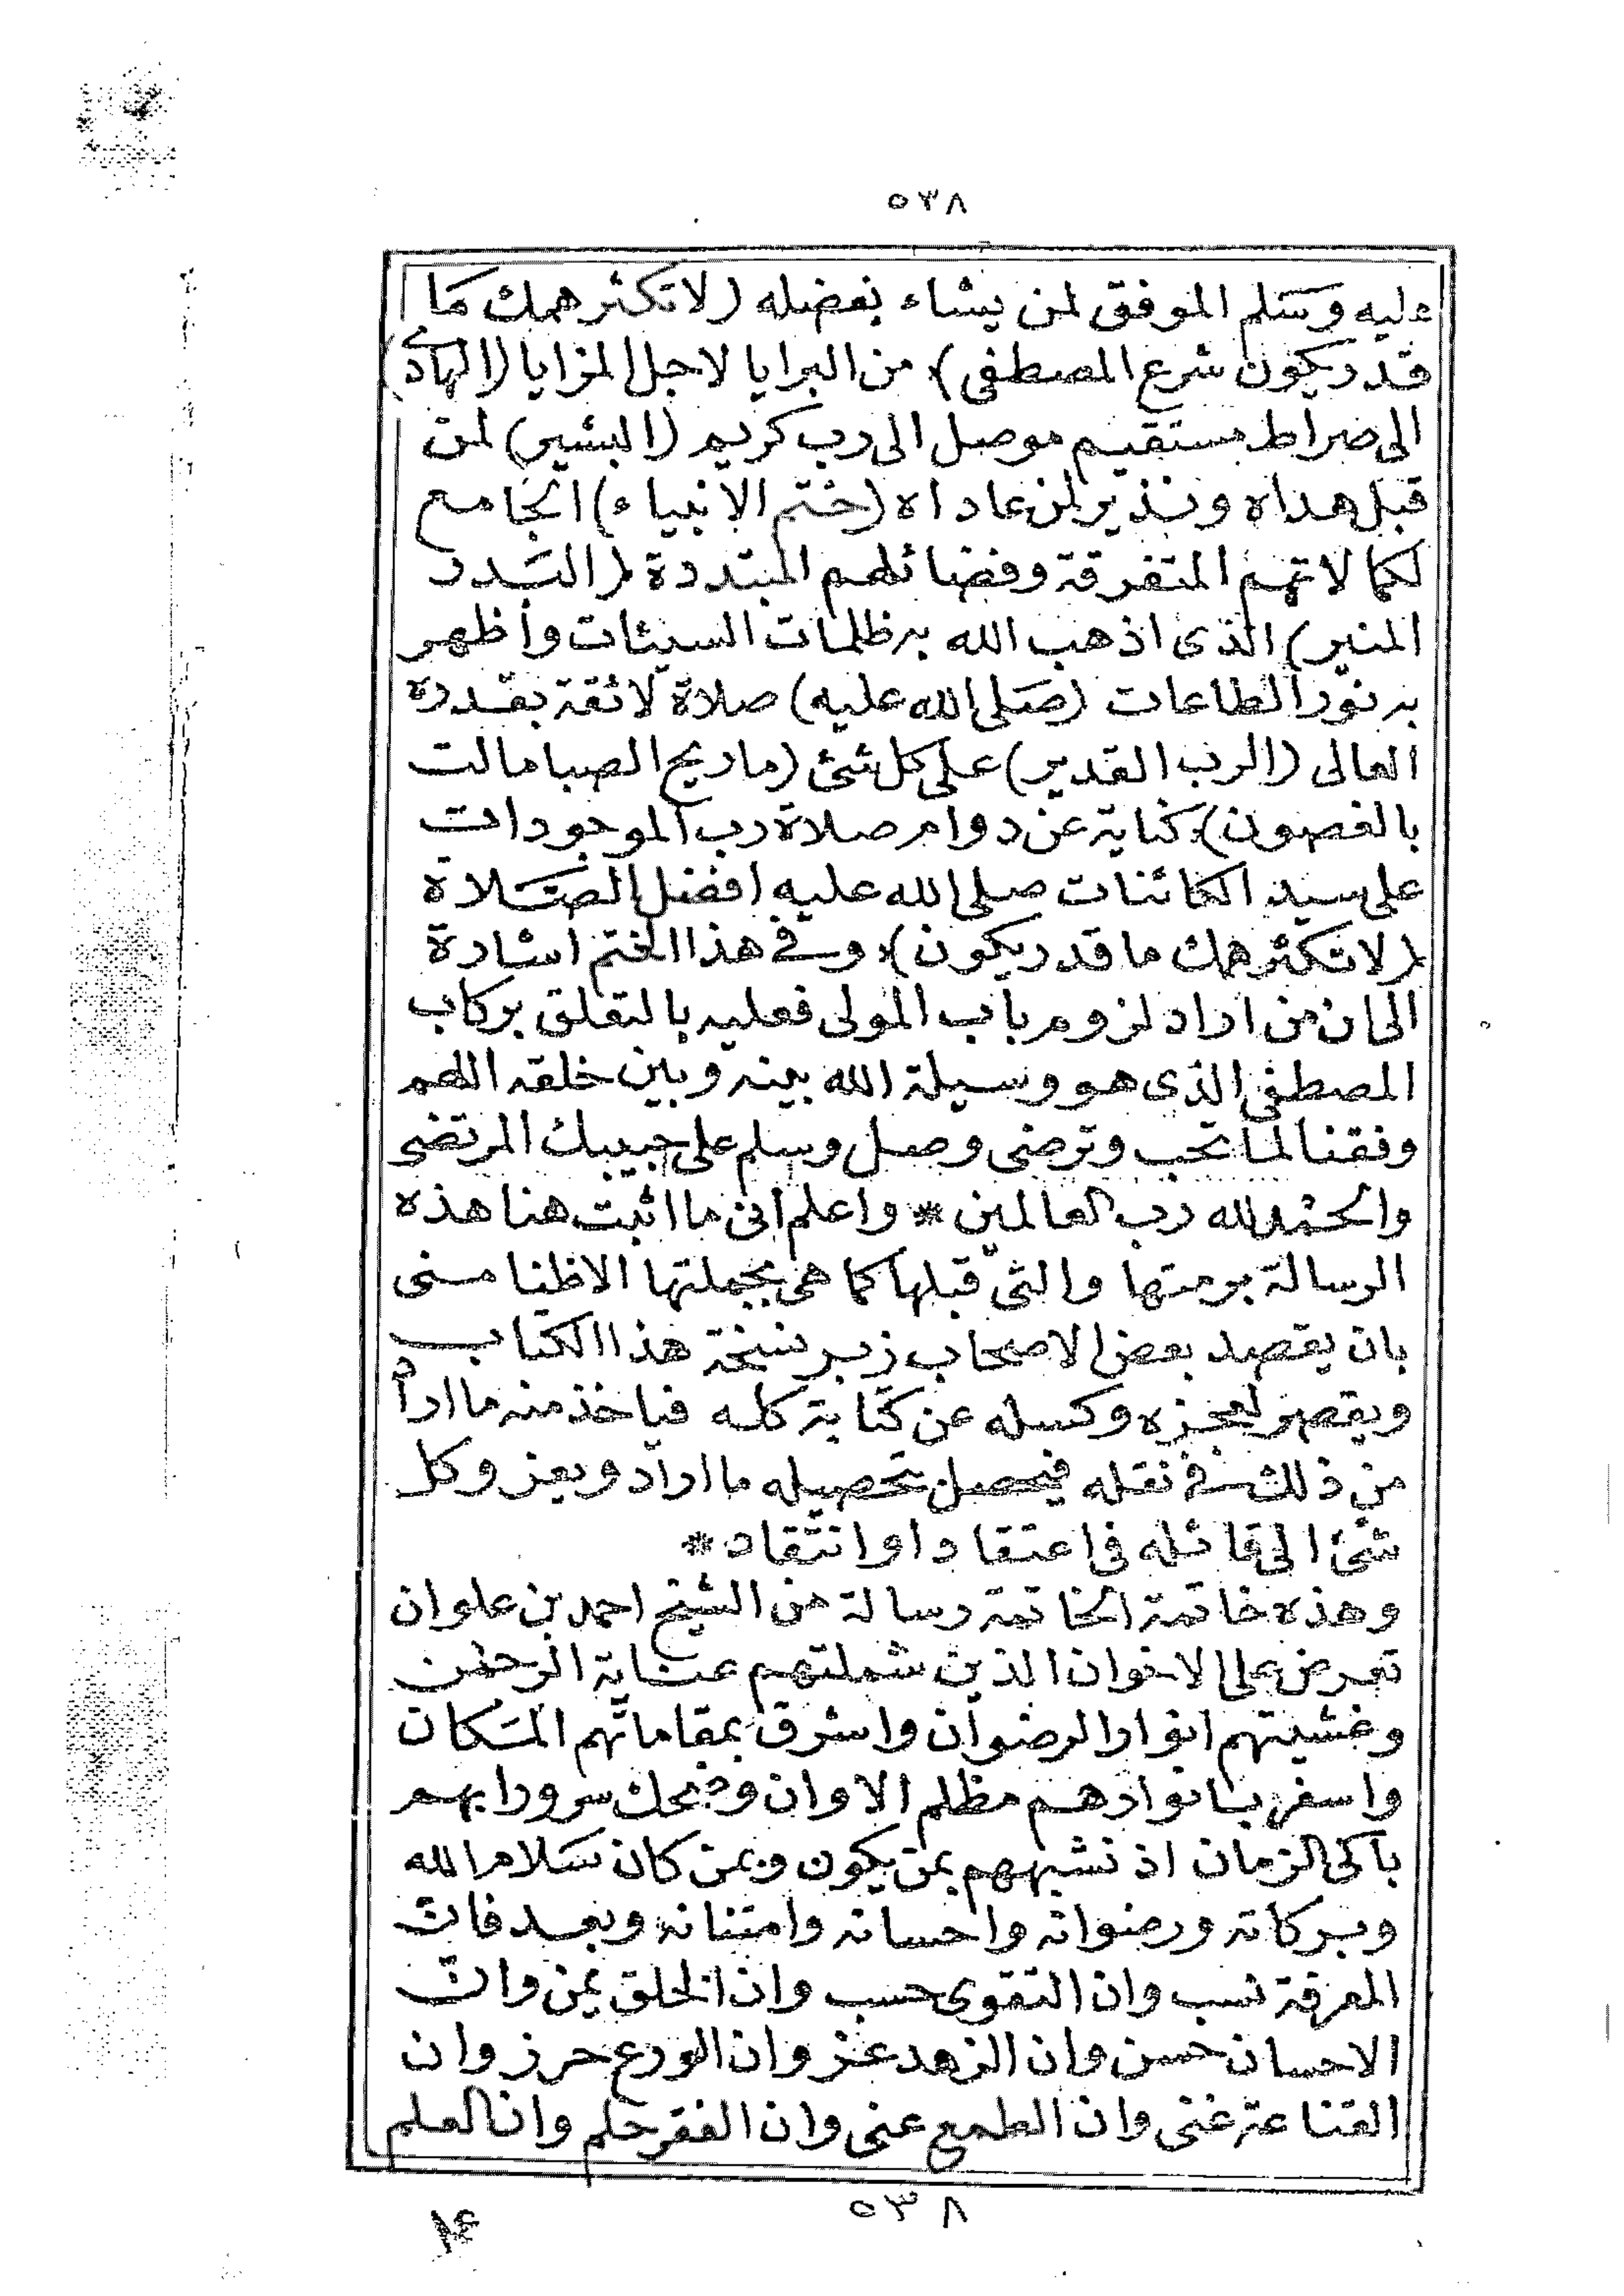 ٥٣٨
عليه وسلم الموفق لمن يشاء بفضله (لا تكثر همك ما
قدر يكون شرع المصطفى) من البرايا لاجل المزايا (الهادى)
الى صراط مستقيم موصل الى رب كريم (البشير) لمن
قبل هداه ونذير لمن عاداه (ختم الانبياء) الجامع
لكمالاتهم المتفرقة وفضائلهم المبتددة (البدر
المنير) الذى اذهب الله به ظلمات السيئات وأظهر
به نور الطاعات (صلى الله عليه) صلاة لائقة بقدره
العالى (الرب القدير) على كل شئ (ما ريح الصبا مالت
بالغصون) كناية عن دوام صلاة رب الموجودات
على سيد الكائنات صلى الله عليه افضل الصلاة
(لا تكثر همك ما قدر يكون) وفى هذا الختم اشارة
الى ان من اراد لزوم باب المولى فعليه بالتعلق بركاب
المصطفى الذى هو وسيلة الله بينه وبين خلقه اللهم
وفقنا لما تحب وترضى وصل وسلم على حبيبك المرتضى
والحمد لله رب العالمين * واعلم انى ما اثبت هنا هذه
الرسالة برمتها والتى قبلها كما هى بجملتها الا ظنا منى
بان يقصد بعض الاصحاب زبر نسخة هذا الكتاب
ويقصر لعجزه وكسله عن كتابة كله فياخذ منه ما اراد
من ذلك فى نقله فيحصل بتحصيله ما اراد ويعز وكل
شئ الى قائله فى اعتقاد او انتقاد *
وهذه خاتمة الخاتمة رسالة من الشيخ احمد بن علوان
تعرض على الاخوان الذين شملتهم عناية الرحمن
وغشيتهم انوار الرضوان واشرق بمقاماتهم المكان
واسفر بانوارهم مظلم الاوان وضحك سرورا بهم
باكى الزمان اذ نشبههم بمن يكون وبمن كان سلام الله
وبركاته ورضوانه واحسانه وامتنانه وبعد فان
المعرفة نسب وان التقوى حسب وان الخلق يمن وان
الاحسان حسن وان الزهد عز وان الورع حرز وان
القناعة غنى وان الطمع عنى وان الفقر حلم وان العلم
٥٣٨